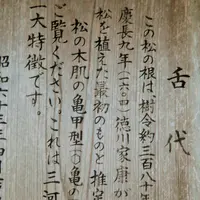 舌代
この松の根は樹令約三百八十年
慶長九年(一六〇四)徳川家康が
松を植えた最初のものと推定
松の木肌の亀甲型()亀の
ご覧ください。これは三河
一大特徴です。
昭和六十三年四月